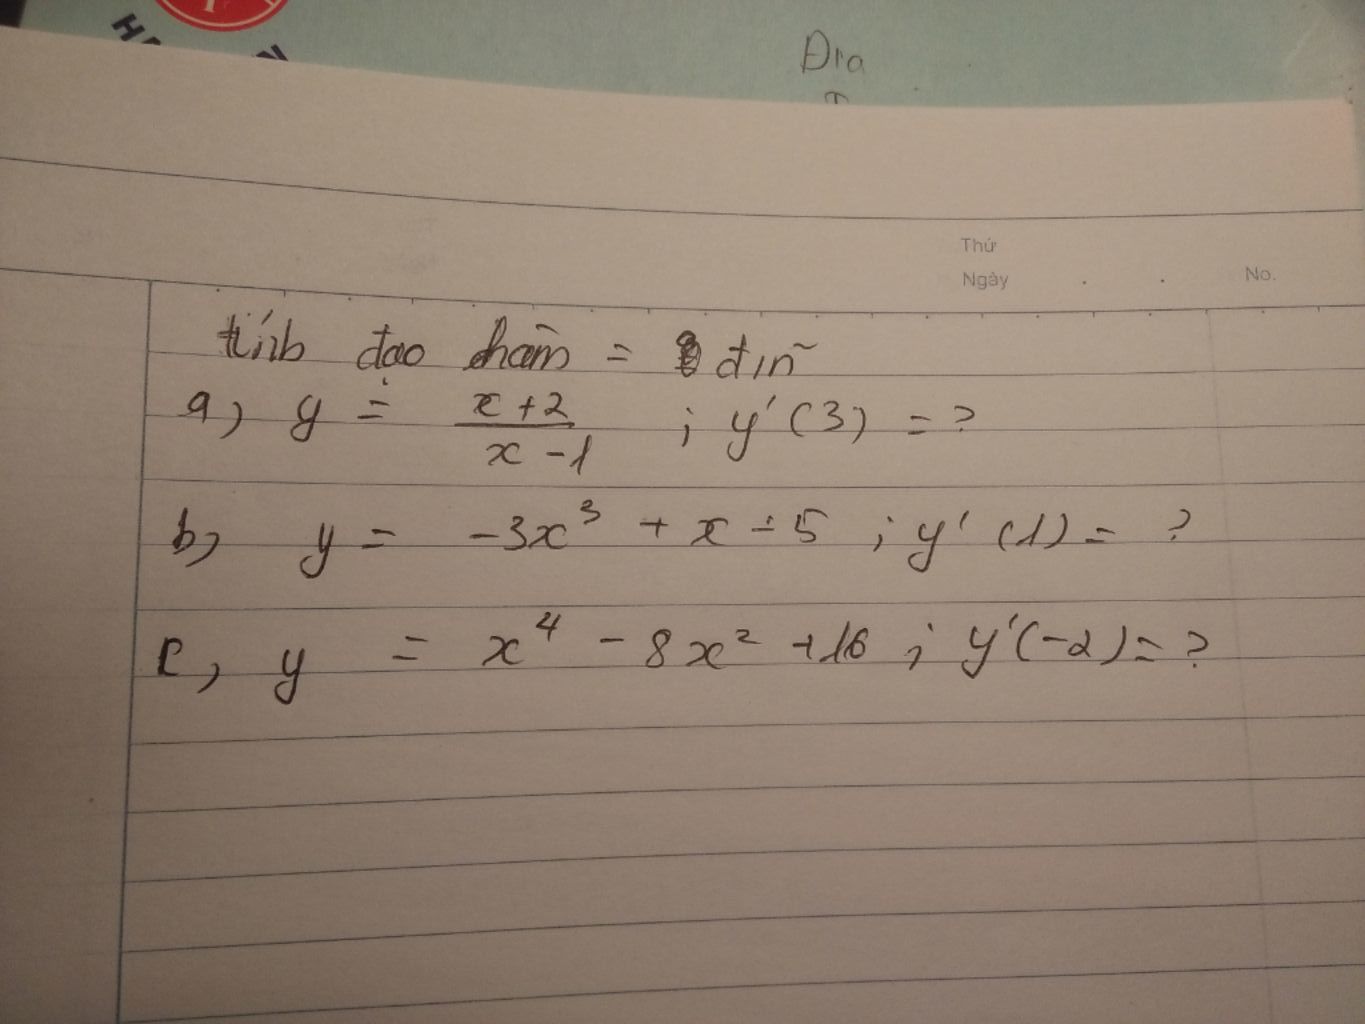 Địa
Thứ
Ngày . . No.
tính đạo hàm = đ/n~
a, y = x+2 / x-1 ; y'(3) = ?
b, y = -3x³ + x - 5 ; y'(1) = ?
c, y = x⁴ - 8x² + 16 ; y'(-2) = ?